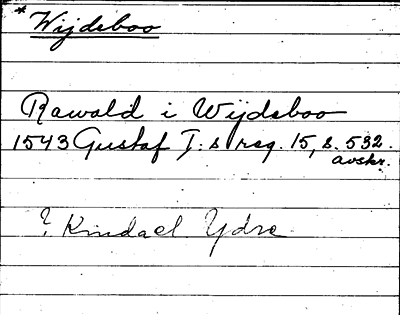 * Wijdsboo
Rawald i Wijdsboo
1543 Gustaf I: s reg. 15, s. 532.
avskr.
? Kindael Ydre